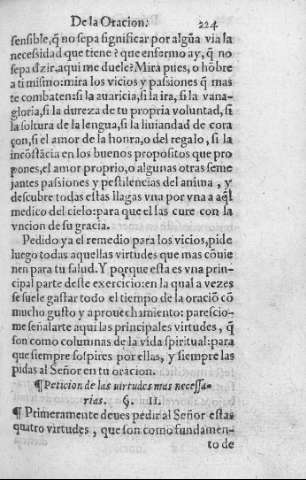 De la Oracion. 224
sensible, q̃ no sepa significar por algũa via la
necessidad que tiene? que enfermo ay, q̃ no
sepa dzir, aqui me duele? Mira pues, o hõbre
a ti mismo: mira los vicios y passiones q̃ mas
te combaten: si la auaricia, si la ira, si la vana-
gloria, si la dureza de tu propria voluntad, si
la soltura de la lengua, si la liuiandad de cora
çon, si el amor de la honra, o del regalo, si la
incõstãcia en los buenos propositos que pro
pones, el amor proprio, o algunas otras seme
jantes passiones y pestilencias del anima, y
descubre todas estas llagas vna por vna a aq̃l
medico del cielo: para que el las cure con la
vncion de su gracia.
Pedido ya el remedio para los vicios, pide
luego todas aquellas virtudes que mas cõuie
nen para tu salud. Y porque esta es vna prin-
cipal parte deste exercicio: en la qual a vezes
se suele gastar todo el tiempo de la oraciõ cõ
mucho gusto y aprouechamiento: parescio-
me señalarte aqui las principales virtudes, q̃
son como columnas de la vida spiritual: para
que siempre sospires por ellas, y siempre las
pidas al Señor en tu oracion.
¶ Peticion de las uirtudes mas necessa-
rias. §. II.
¶ Primeramente deues pedir al Señor estas
quatro virtudes, que son como fundamen-
to de